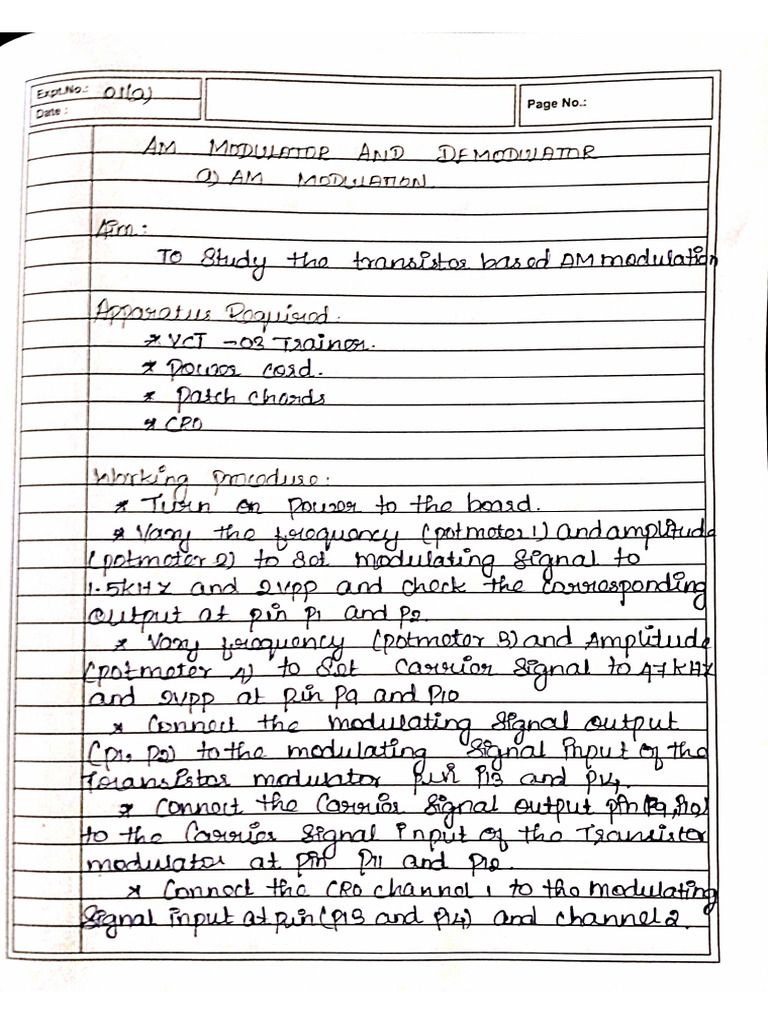 Expt.No.: 01(a)
Date :
Page No.:
AM MODULATOR AND DEMODULATOR
a) AM MODULATION.
Aim:
To Study the transistor based AM modulation
Apparatus Required.
* VCT -03 Trainer.
* Power cord.
* Patch chords
* CRO
Working Procedure:
* Turn on power to the board.
* Vary the frequency (potmeter 1) and amplitude
(potmeter 2) to Set modulating Signal to
1.5KHZ and 2Vpp and check the corresponding
output at pin P1 and P2.
* Vary frequency (potmeter 3) and Amplitude
(potmeter 4) to Set Carrier Signal to 47KHZ
and 2Vpp at pin P9 and P10
* Connect the modulating Signal output
(P1, P2) to the modulating Signal input of the
Transistor modulator pin P13 and P14.
* Connect the Carrier Signal output pin (P9, P10)
to the Carrier Signal Input of the Transistor
modulator at pin P11 and P12.
* Connect the CRO channel 1 to the modulating
Signal input at pin (P13 and P14) and channel 2.